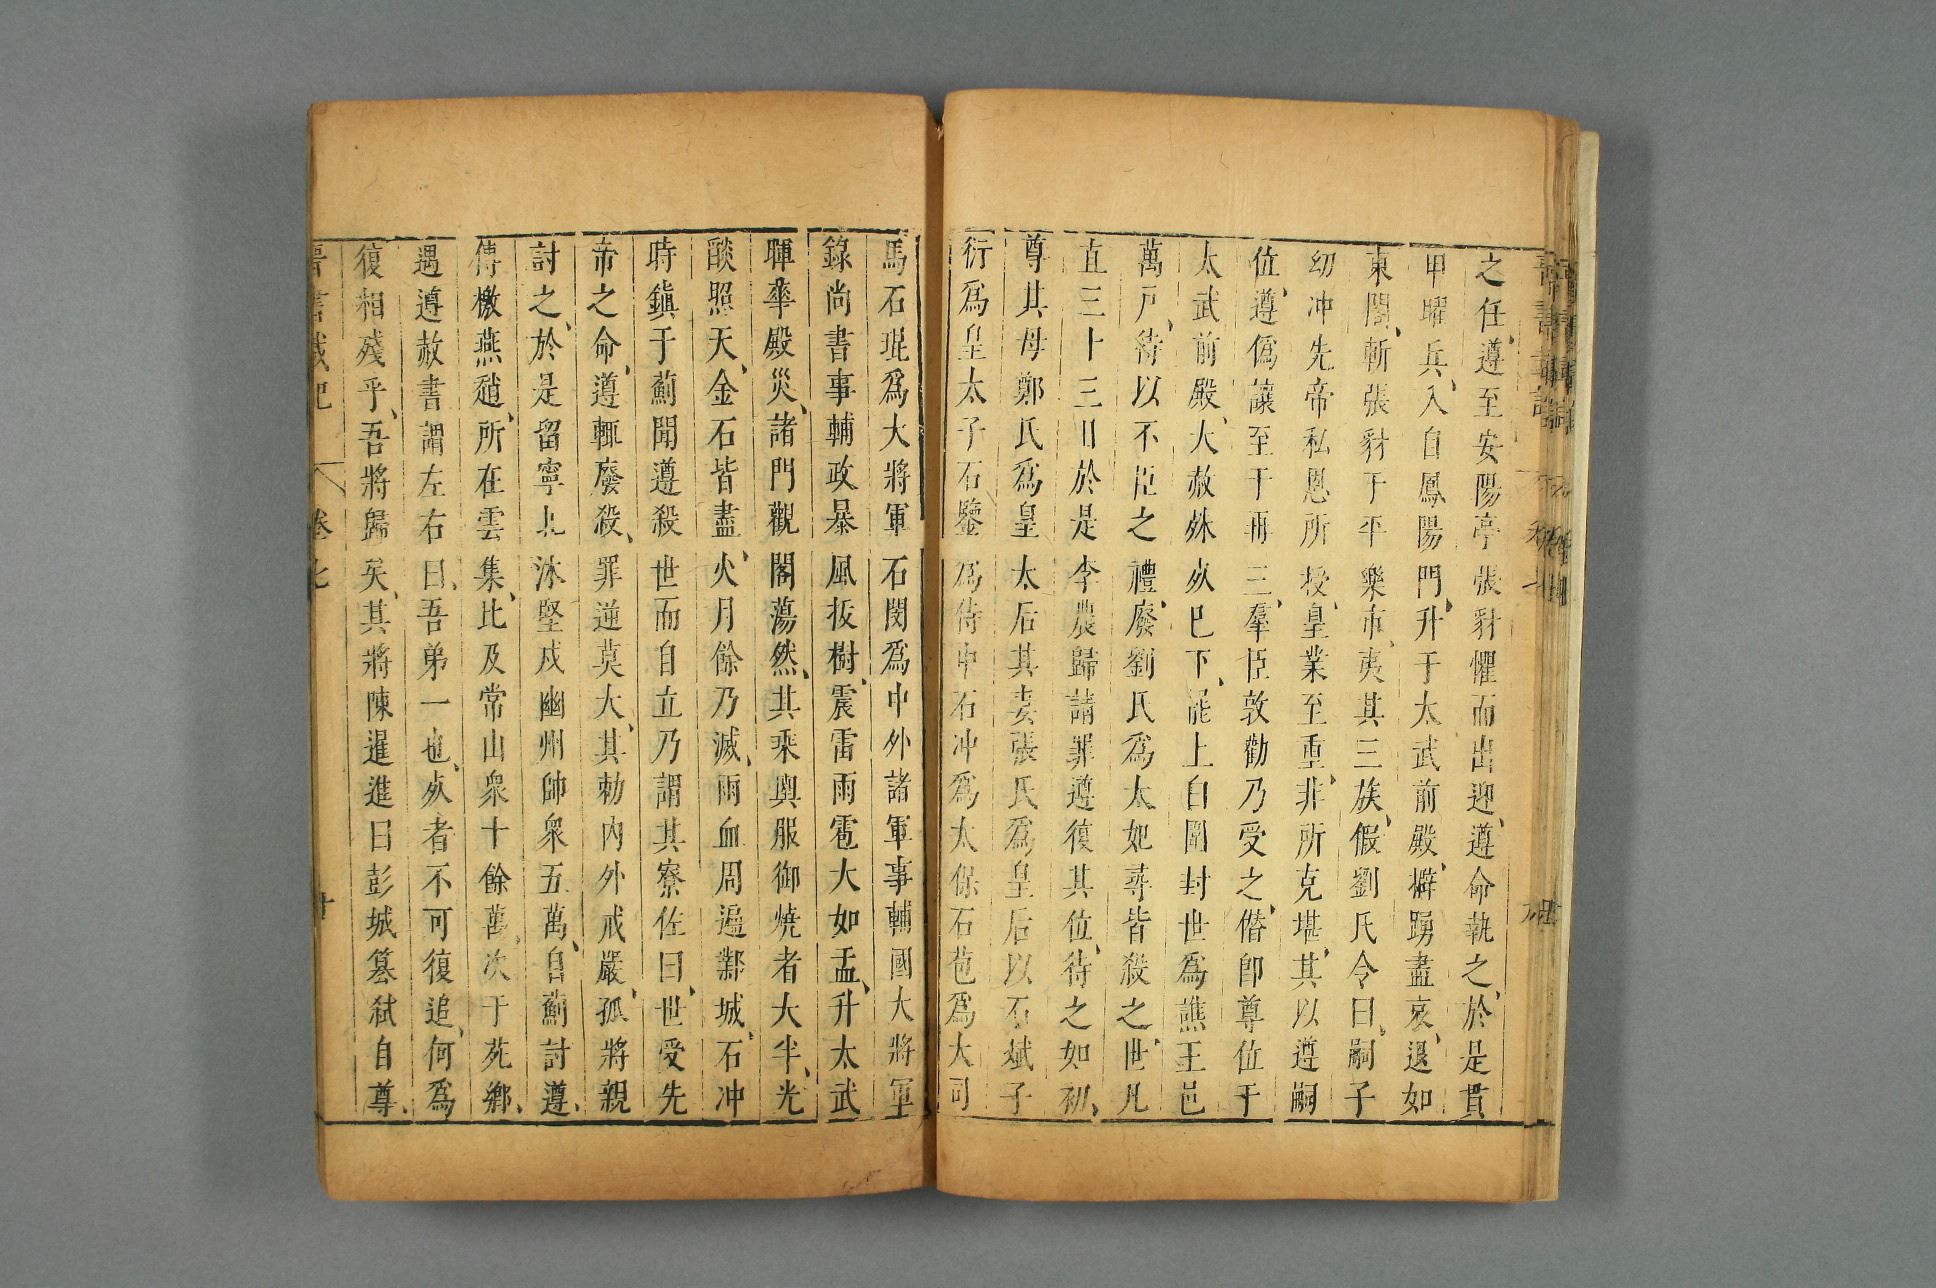 之任遵至安陽亭張豺懼而出迎遵命執之於是貫
甲曜兵入自鳳陽門升于太武前殿擗踴盡哀退如
東閣斬張豺于平樂市夷其三族假劉氏令曰嗣子
幼冲先帝私恩所授皇業至重非所克堪其以遵嗣
位遵僞讓至于再三羣臣敦勸乃受之僭卽尊位于
太武前殿大赦殊死巳下罷上白圍封世爲譙王邑
萬戸待以不臣之禮廢劉氏爲太妃尋皆殺之世凡
立三十三日於是李農歸請罪遵復其位待之如初
尊其母鄭氏爲皇太后其妻張氏爲皇后以石斌子
衍爲皇太子石鑒爲侍中石冲爲太保石苞爲大司
馬石琨爲大將軍石閔爲中外諸軍事輔國大將軍
錄尚書事輔政暴風拔樹震雷雨雹大如盂升太武
暉華殿災諸門觀閣蕩然其乘輿服御燒者大半光
燄照天金石皆盡火月餘乃滅雨血周遍鄴城石冲
時鎭于薊聞遵殺世而自立乃謂其寮佐曰世受先
帝之命遵輒廢殺罪逆莫大其勑内外戒嚴孤將親
討之於是留寧北沐堅戍幽州帥衆五萬自薊討遵
傳檄燕趙所在雲集比及常山衆十餘萬次于苑鄉
遇遵赦書謂左右曰吾弟一也死者不可復追何爲
復相殘乎吾將歸矣其將陳暹進曰彭城簒弑自尊
晋書載記 卷七 廿